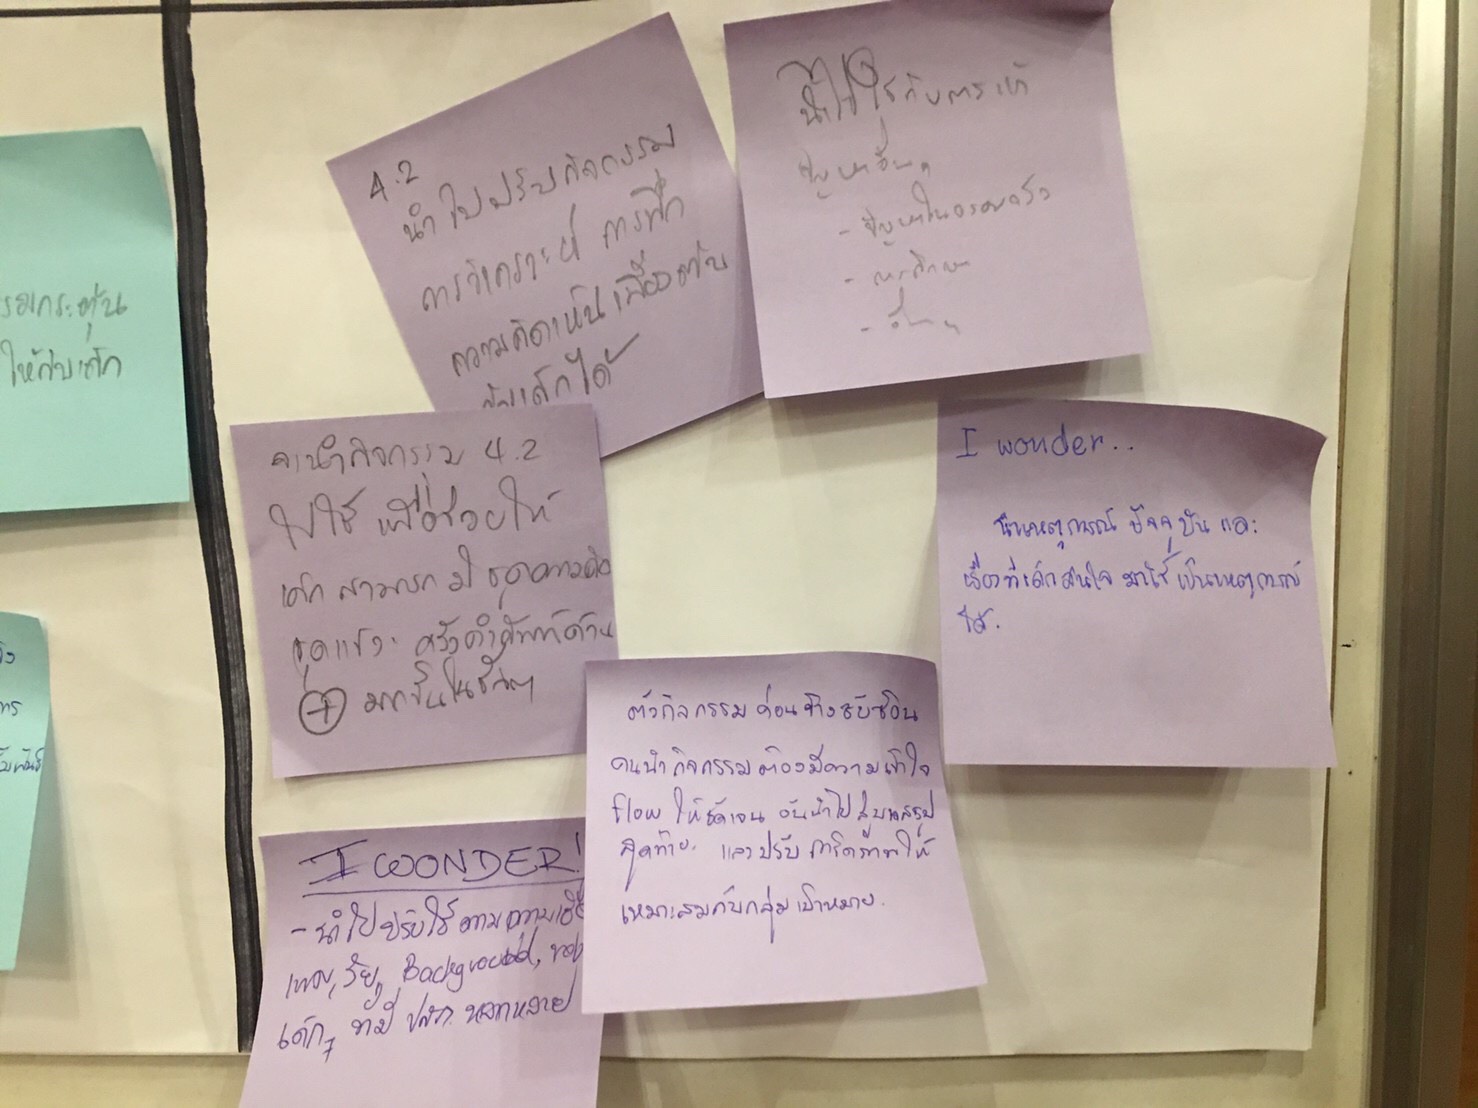 4.2
นำไปปรับกิจกรรม
การวิเคราะห์ การฝึก
ความคิดเห็นเบื้องต้น
กับเด็กได้
นำไปใช้กับการแก้
ปัญหาอื่นๆ
- ปัญหาในครอบครัว
- การศึกษา
- อื่นๆ
กระตุ้น
ให้กับเด็ก
จะนำกิจกรรม 4.2
ไปใช้ เพื่อช่วยให้
เด็กสามารถมีชุดความคิด
ชุดและ คลังคำศัพท์ด้าน
+ มากขึ้นในชีวิต
I wonder..
นำเหตุการณ์ ปัจจุบัน และ
เรื่องที่เด็กสนใจ มาใช้ เป็นเหตุการณ์
ได้.
ตัวกิจกรรม ค่อนข้างซับซ้อน
คนนำกิจกรรมต้องมีความเข้าใจ
flow ให้ชัดเจน อันนำไปสู่บทสรุป
สุดท้าย และปรับ การ์ดภาพให้
เหมาะสมกับกลุ่มเป้าหมาย.
I WONDER!
- นำไปปรับใช้ตามความ
เพศ, วัย, Background, ของ
เด็กๆ ที่มี ปสก. หลากหลาย